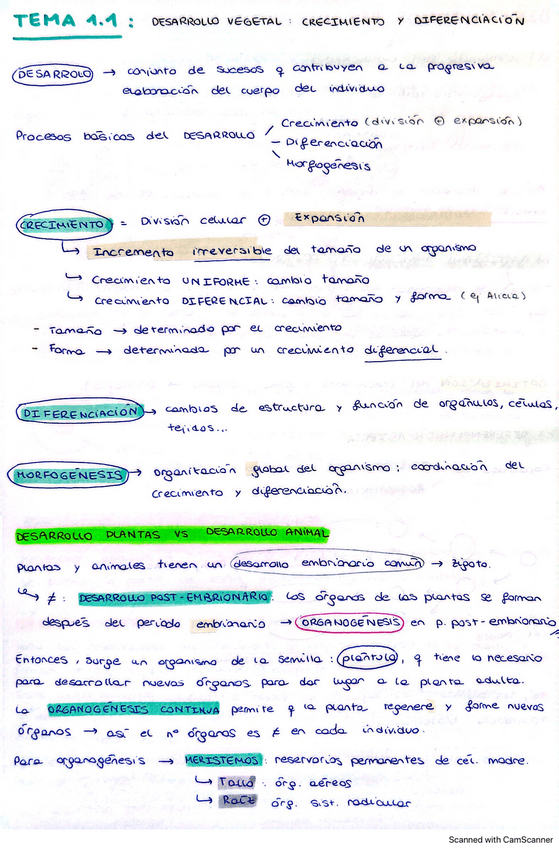 TEMA 1.1 : DESARROLLO VEGETAL : CRECIMIENTO Y DIFERENCIACIÓN
DESARROLO → conjunto de sucesos q contribuyen a la progresiva
elaboración del cuerpo del individuo
Procesos básicos del DESARROLLO / Crecimiento (división ⊕ expansión)
- Diferenciación
\ Morfogénesis
CRECIMIENTO = División celular ⊕ Expansión
↳ Incremento irreversible del tamaño de un organismo
↳ Crecimiento UNIFORME : cambio tamaño
↳ crecimiento DIFERENCIAL : cambio tamaño y forma (ej Alicia)
- Tamaño → determinado por el crecimiento
- Forma → determinada por un crecimiento diferencial.
DIFERENCIACIÓN → cambios de estructura y función de orgánulos, células,
tejidos...
MORFOGÉNESIS → organización global del organismo : coordinación del
crecimiento y diferenciación.
DESARROLLO PLANTAS VS DESARROLLO ANIMAL
Plantas y animales tienen un desarrollo embrionario común → zigoto.
↳ ≠ : DESARROLLO POST-EMBRIONARIO. Los órganos de las plantas se forman
después del periodo embrionario → ORGANOGÉNESIS en p. post-embrionario
Entonces, surge un organismo de la semilla : plántula, q tiene lo necesario
para desarrollar nuevos órganos para dar lugar a la planta adulta.
La ORGANOGÉNESIS CONTINUA permite q la planta regenere y forme nuevos
órganos → así el nº órganos es ≠ en cada individuo.
Para organogénesis → MERISTEMOS : reservorios permanentes de cél. madre.
↳ Tallo : órg. aéreos
↳ Raíz órg. sist. radicular
Scanned with CamScanner